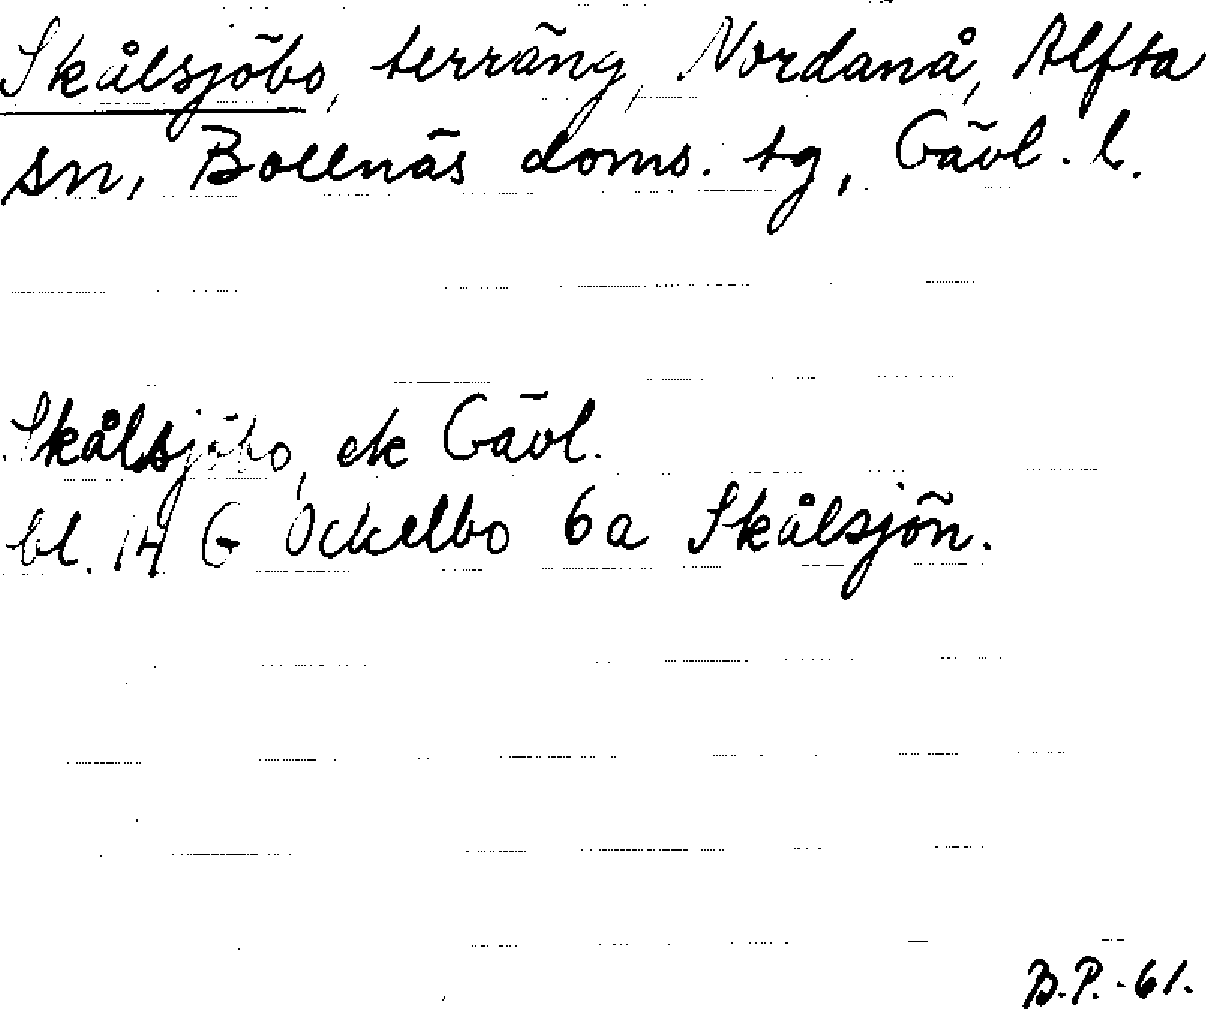 Skålsjöbo, terräng, Nordanå, Alfta
sn, Bollnäs doms. tg, Gävl. l.
Skålsjöbo, ek Gävl.
bl. 14 G Ockelbo 6a Skålsjön.
B.P.-61.